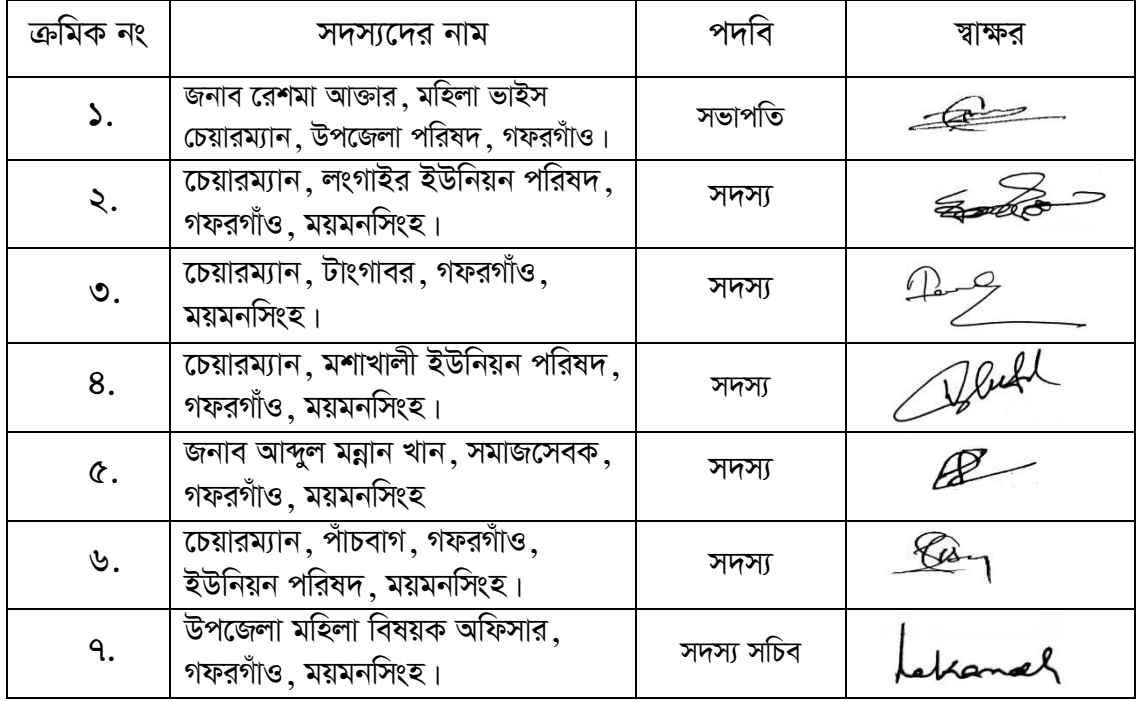 ক্রমিক নং সদস্যদের নাম পদবি স্বাক্ষর
১. জনাব রেশমা আক্তার, মহিলা ভাইস
চেয়ারম্যান, উপজেলা পরিষদ, গফরগাঁও। সভাপতি
২. চেয়ারম্যান, লংগাইর ইউনিয়ন পরিষদ,
গফরগাঁও, ময়মনসিংহ। সদস্য
৩. চেয়ারম্যান, টাংগাবর, গফরগাঁও,
ময়মনসিংহ। সদস্য
৪. চেয়ারম্যান, মশাখালী ইউনিয়ন পরিষদ,
গফরগাঁও, ময়মনসিংহ। সদস্য
৫. জনাব আব্দুল মন্নান খান, সমাজসেবক,
গফরগাঁও, ময়মনসিংহ সদস্য
৬. চেয়ারম্যান, পাঁচবাগ, গফরগাঁও,
ইউনিয়ন পরিষদ, ময়মনসিংহ। সদস্য
৭. উপজেলা মহিলা বিষয়ক অফিসার,
গফরগাঁও, ময়মনসিংহ। সদস্য সচিব